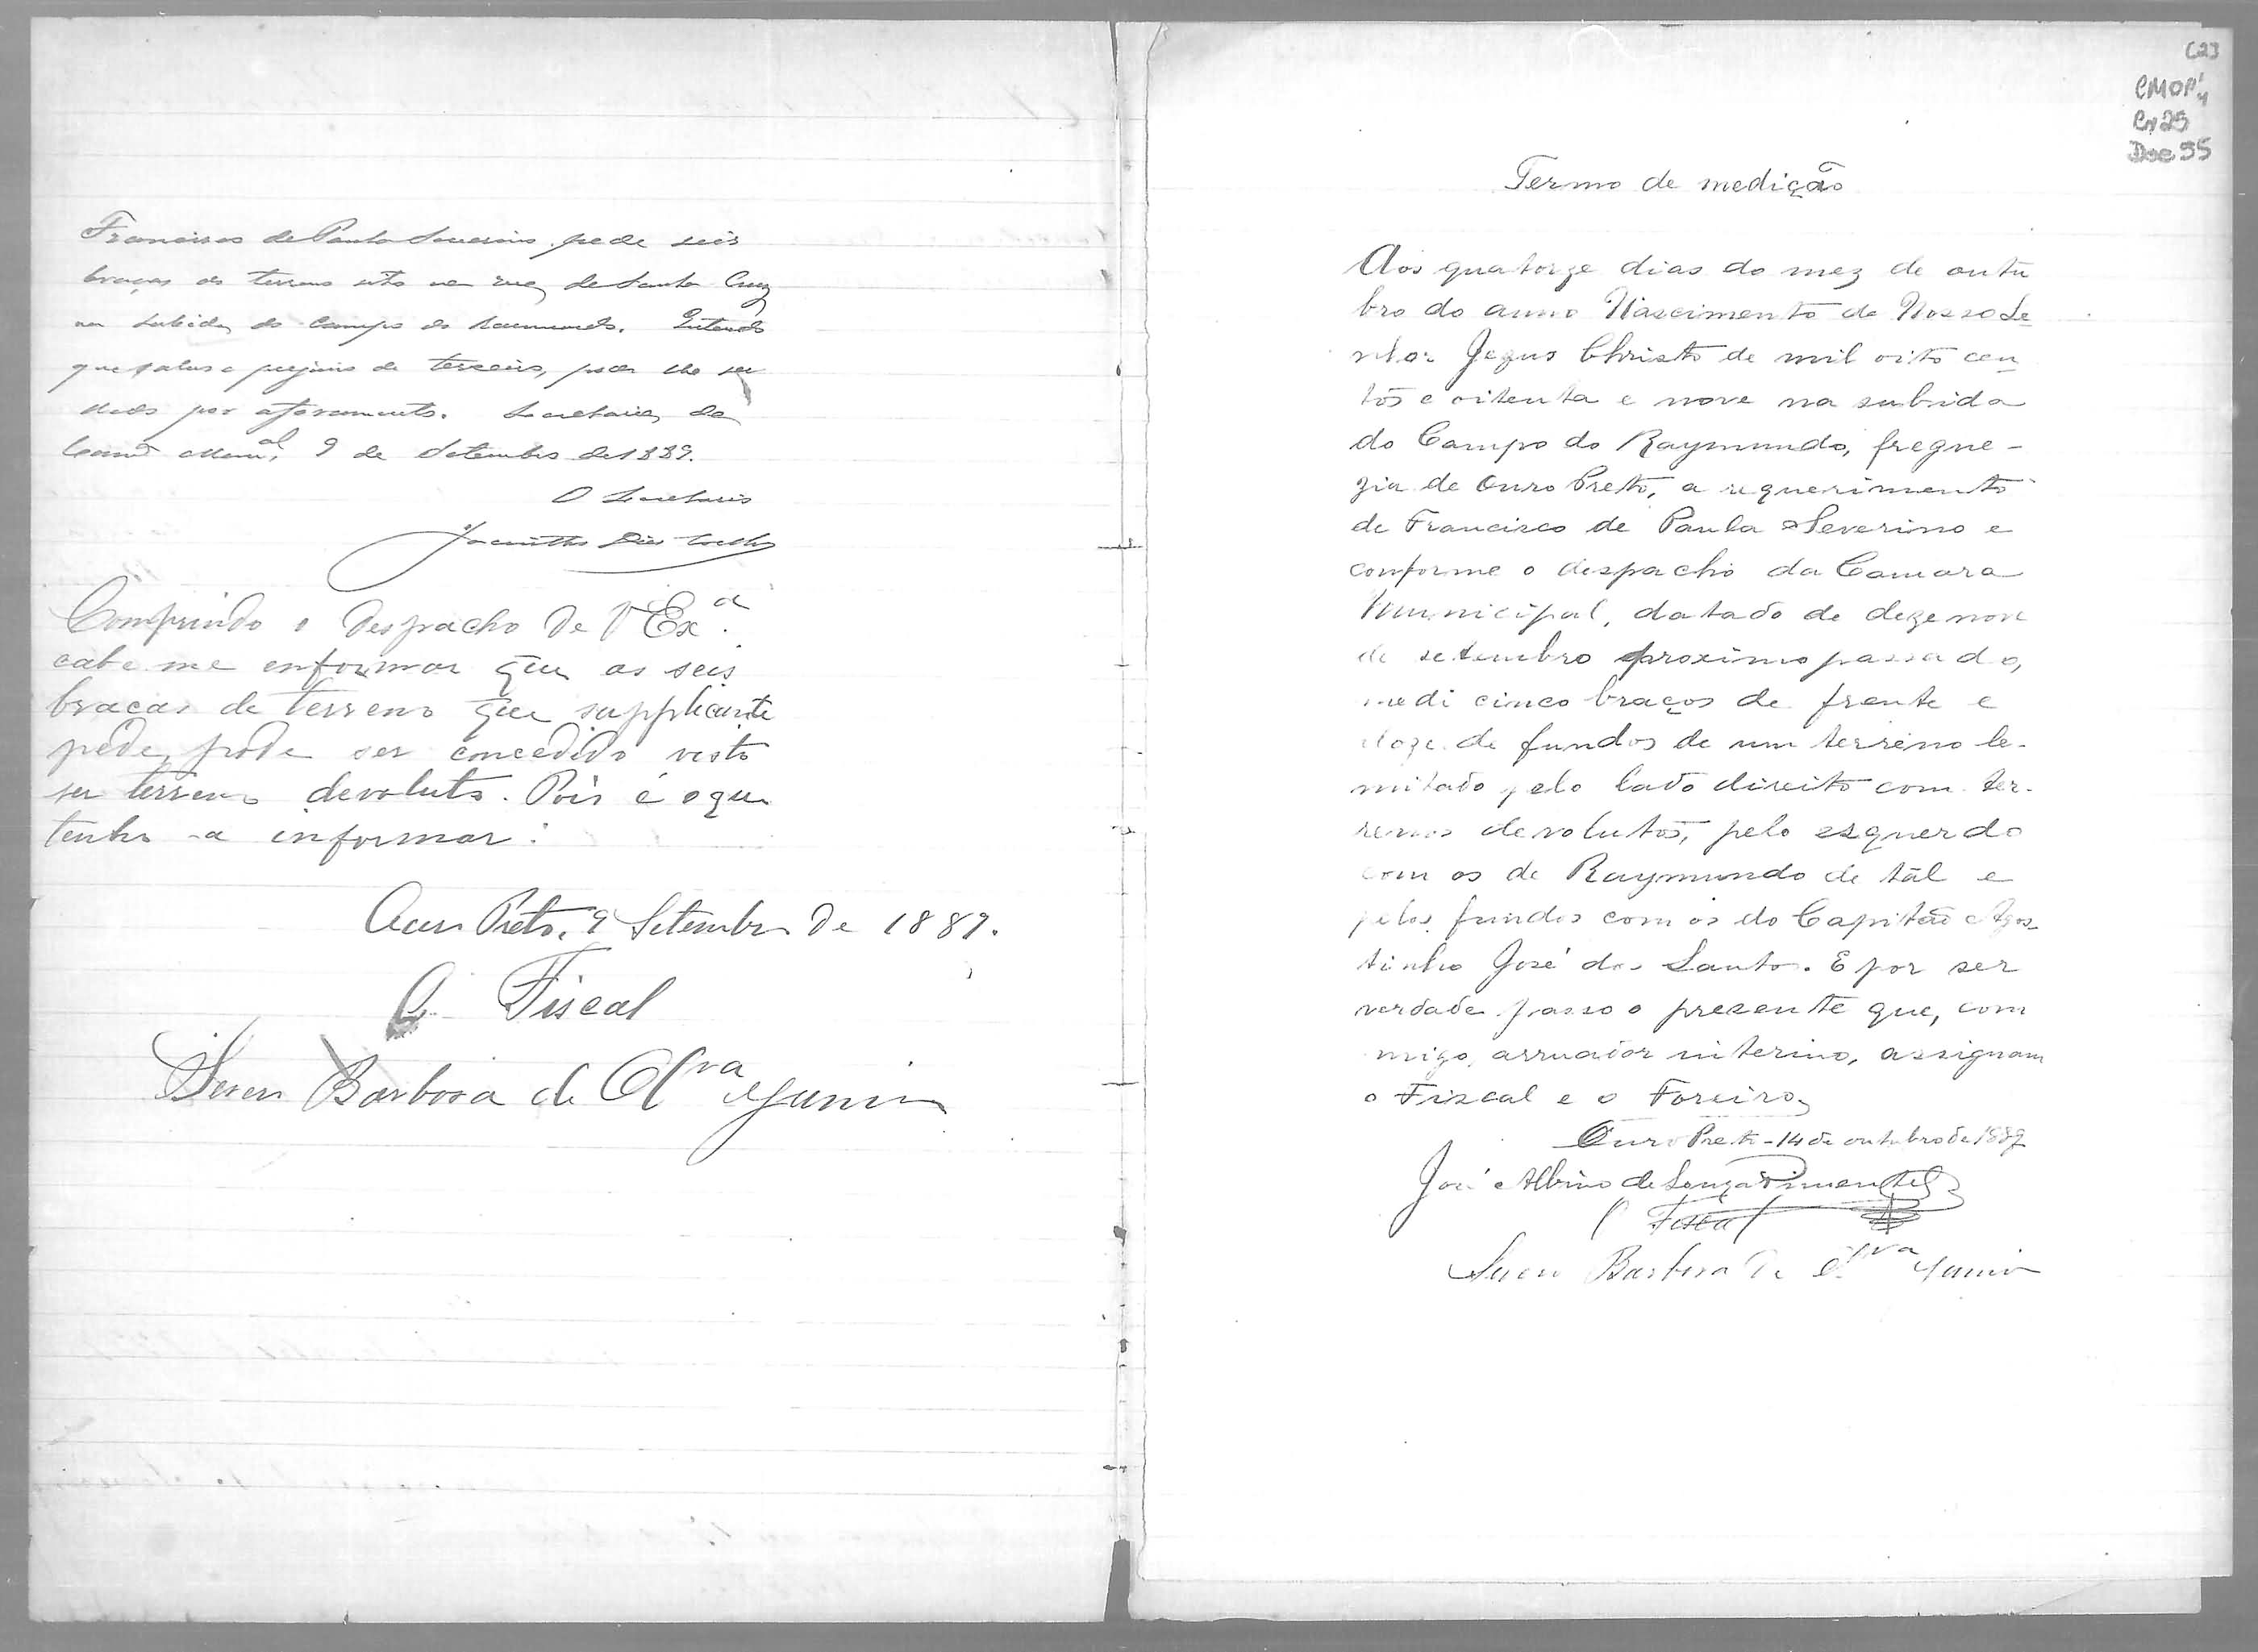 Francisco de Paula Severino, pede seis
braças de terreno sito na rua de Santa Cruz
na subida do Campo do Raimundo. Entendo
que salvo o prejuizo de terceiro, póde lhe ser
dado por aforamento. Secretaria da
Camª Munal, 9 de Setembro de 1889.
O Secretario
Jacintho Dias Coelho
Comprindo o Despacho de V Exª.
cabe me enformar que as seis
bracas de terreno que supplicante
pede, pode ser concedido visto
ser terreno devoluto. Pois é o que
tenho a informar.
Ouro Preto, 9 Setembro de 1889.
O Fiscal
Barbosa de Olvra Junior
(23
CMOP
Cx 25
Doc 95
Termo de medição
Aos quatorze dias do mez de outu
bro do anno Nascimento de Nosso Se
nhor Jezus Christo de mil oito cen
tos e oitenta e nove na subida
do Campo do Raymundo, fregue-
zia de Ouro Preto, a requerimento
de Francisco de Paula Severino e
conforme o despacho da Camara
Municipal, datado de dezenove
de setembro proximo passado,
medi cinco braços de frente e
doze de fundos de um terreno le-
mitado pelo lado direito com ter-
renos devolutos, pelo esquerdo
com os de Raymundo de tal e
pelos fundos com os do Capitão Agos-
tinho José dos Santos. E por ser
verdade passo o prezente que, com
migo, arruador interino, assignam
o Fiscal e o Foreiro,
Ouro Preto - 14 de outubro de 1889
José Albino de Souza Pimentel
O Fiscal
Barbosa de Olvra Junior